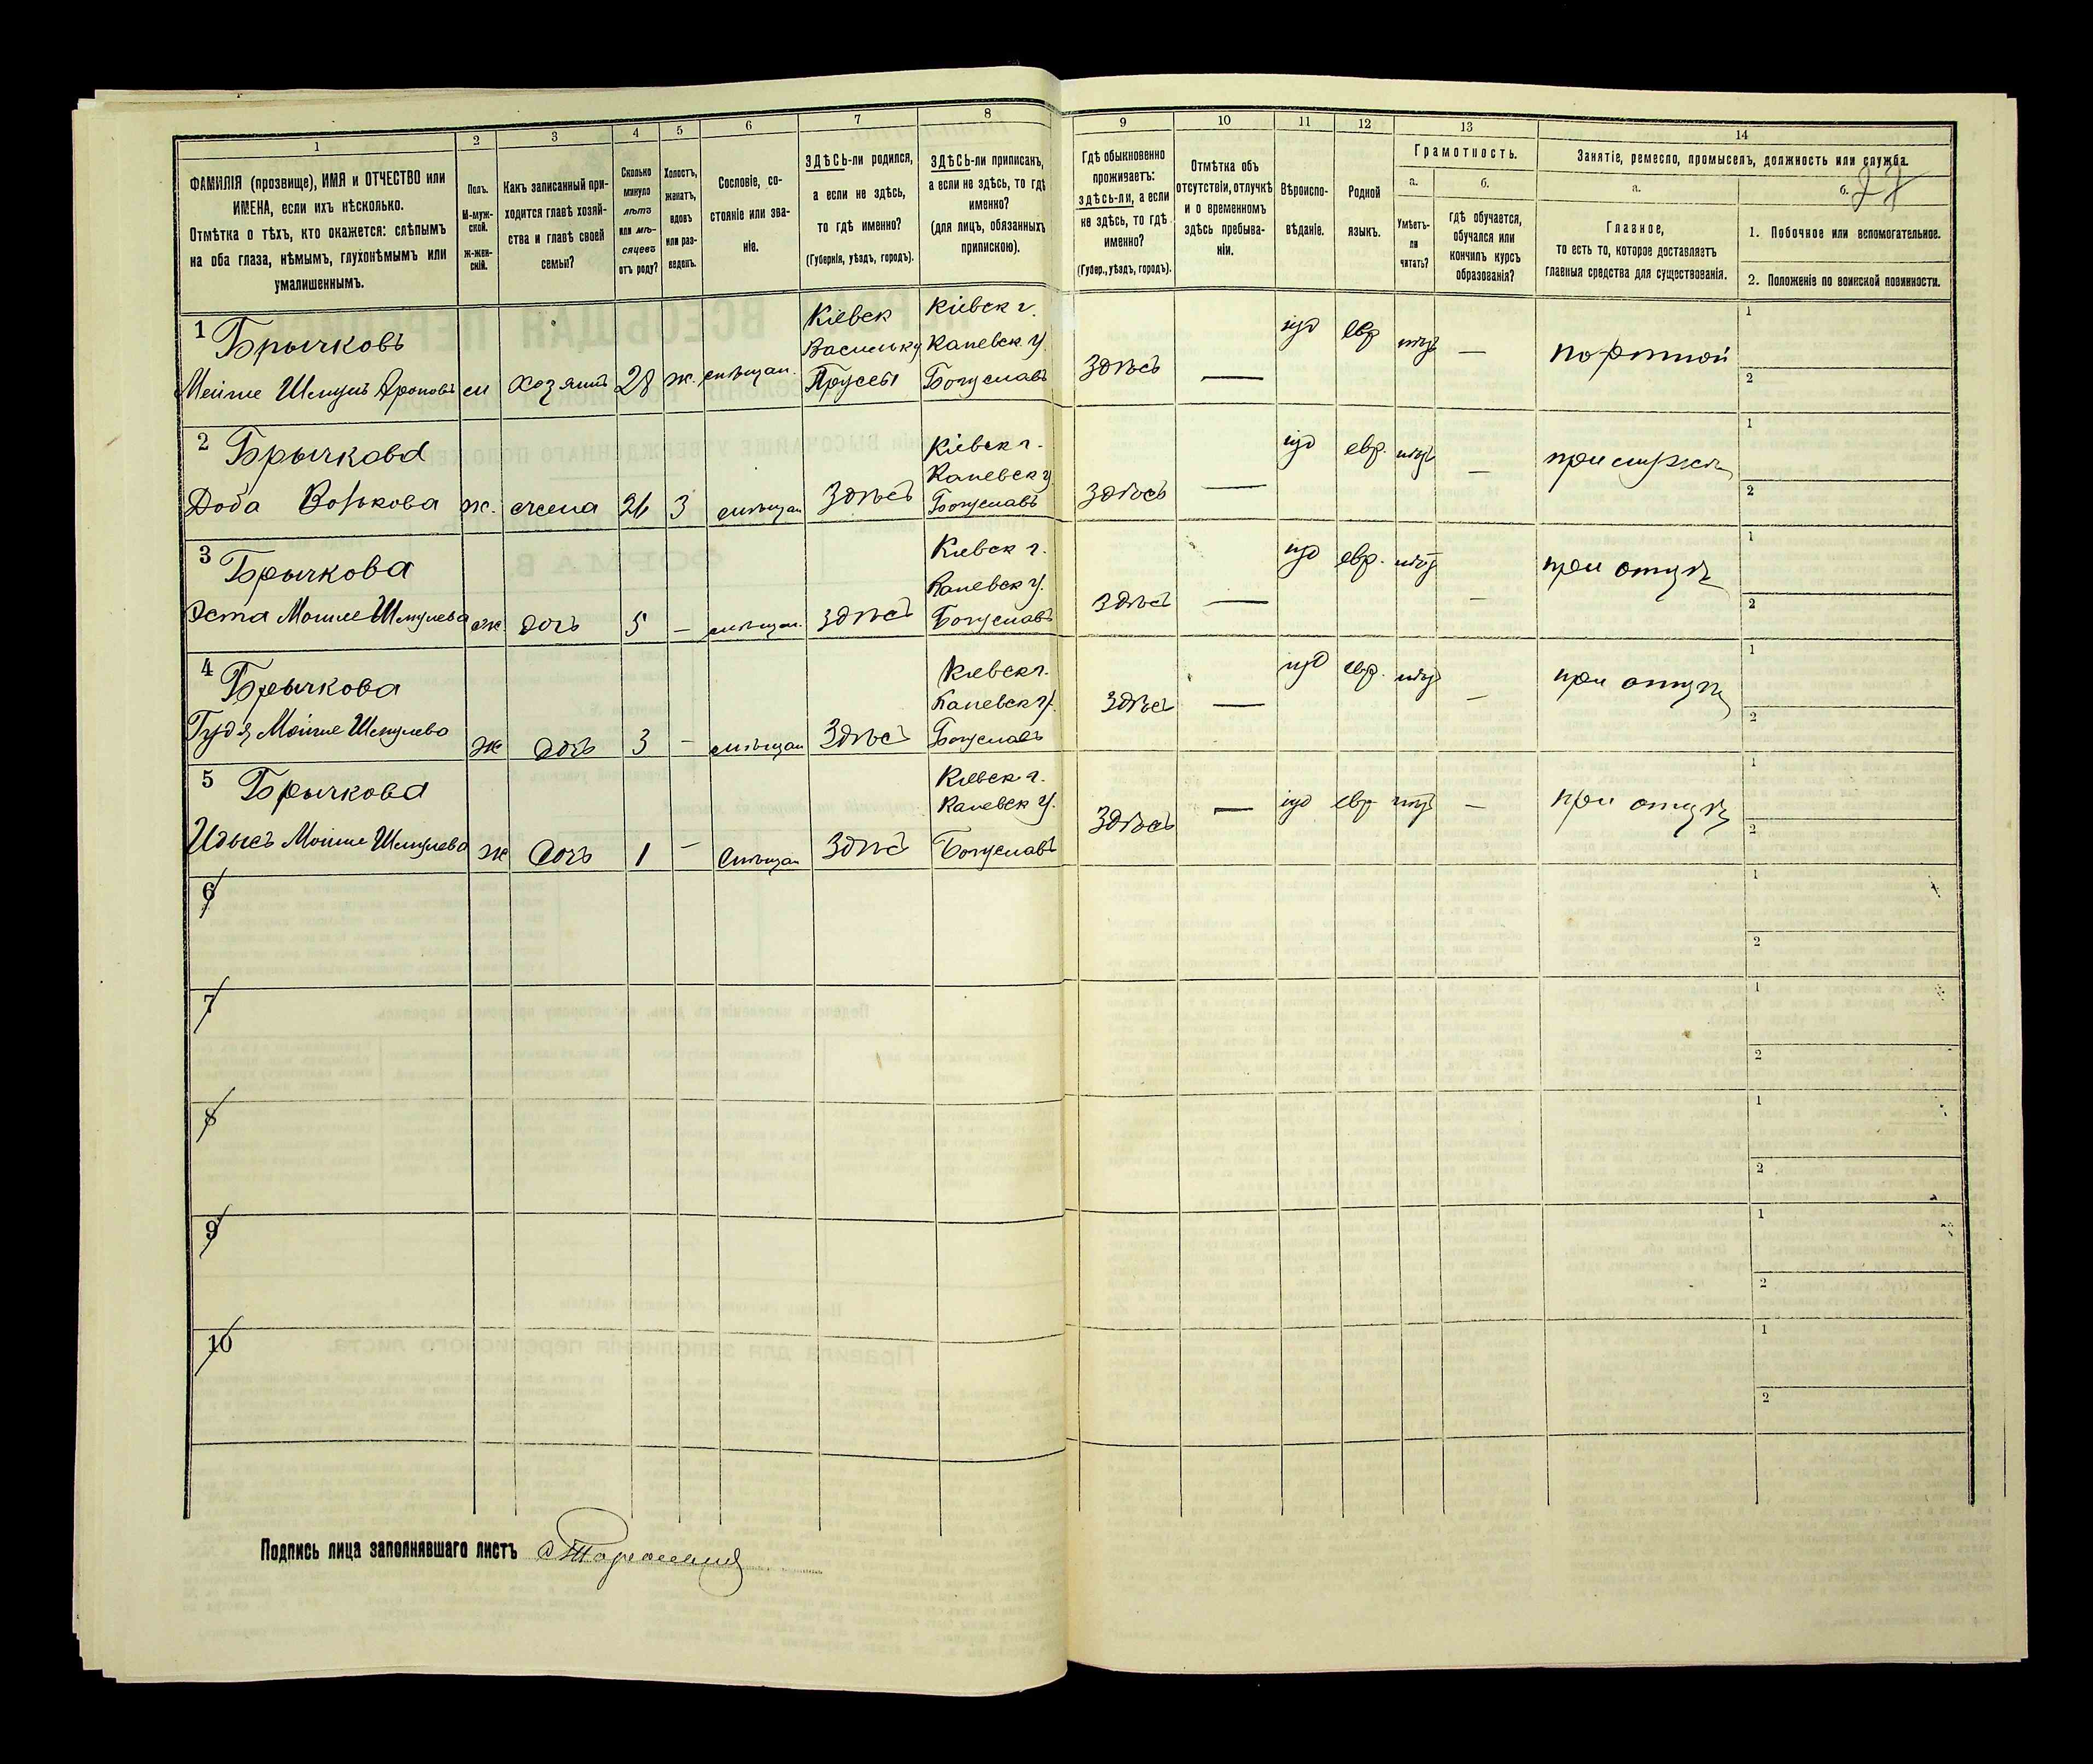 1 2 3 4 5 6 7 8 9 10 11 12 13 14
ФАМИЛІЯ (прозвище), ИМЯ и ОТЧЕСТВО или
ИМЕНА, если ихъ нѣсколько.
Отмѣтка о тѣхъ, кто окажется: слѣпымъ
на оба глаза, нѣмымъ, глухонѣмымъ или
умалишеннымъ.
Полъ.
М-муж-
ской.
Ж-жен-
скій.
Какъ записанный при-
ходится главѣ хозяй-
ства и главѣ своей
семьи?
Сколько
минуло
лѣтъ
или мѣ-
сяцевъ
отъ роду?
Холостъ,
женатъ,
вдовъ
или раз-
веденъ.
Сословіе, со-
стояніе или зва-
ніе.
ЗДѢСЬ-ли родился,
а если не здѣсь,
то гдѣ именно?
(Губернія, уѣздъ, городъ).
ЗДѢСЬ-ли приписанъ,
а если не здѣсь, то гдѣ
именно?
(для лицъ, обязанныхъ
припискою).
Гдѣ обыкновенно
проживаетъ:
здѣсь-ли, а если
не здѣсь, то гдѣ
именно?
(Губер., уѣздъ, городъ).
Отмѣтка объ
отсутствіи, отлучкѣ
и о временномъ
здѣсь пребыва-
ніи.
Вѣроиспо-
вѣданіе.
Родной
языкъ.
Грамотность.
а.
Умѣетъ-
ли
читать?
б.
гдѣ обучается,
обучался или
кончилъ курсъ
образованія?
Занятіе, ремесло, промыселъ, должность или служба.
а.
Главное,
то есть то, которое доставляетъ
главныя средства для существованія.
б.
1. Побочное или вспомогательное.
2. Положеніе по воинской повинности.
1 Брычковъ
Мойше Шмуль м хозяинъ 28 ж. мѣщан.
Кіевск
Васильк у
Прусы
Кіевск г.
Каневск у.
Богуславъ
здѣсь — іуд евр — портной 1
2
2 Брычкова
Доба ж. жена 26 З мѣщан здѣсь
Кіевск г.
Каневск у
Богуславъ
здѣсь — іуд евр. — 1
2
3 Брычкова
Эста Мойше Шмулева ж. дочь 5 — мѣщан. здѣсь
Кіевск г.
Каневск у.
Богуславъ
здѣсь — іуд евр. — при отцѣ 1
2
4 Брычкова
Мойше Шмулева ж дочь 3 — мѣщан здѣсь
Кіевск г.
Каневск у.
Богуславъ
здѣсь — іуд евр. — при отцѣ 1
2
5 Брычкова
Мойше Шмулева ж дочь 1 — мѣщан здѣсь
Кіевск г.
Каневск у.
Богуславъ
здѣсь — іуд евр — при отцѣ 1
2
6 1
2
7 1
2
8 1
2
9 1
2
10 1
2
Подпись лица заполнявшаго листъ